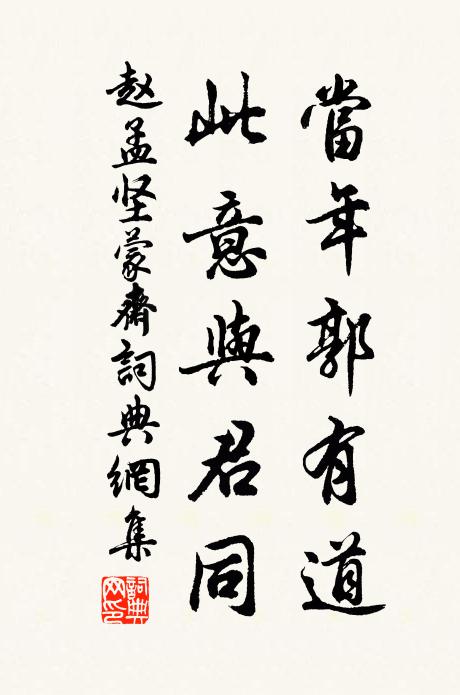 當年郭有道
此意與君同
赵孟坚蒙齋詞典網集
詞典網印